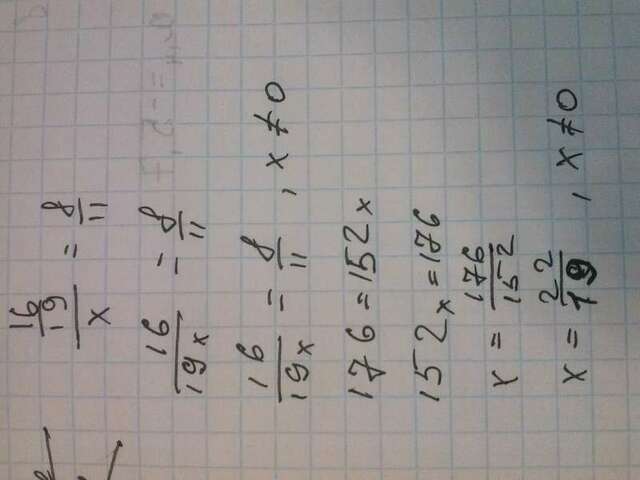 16/19 / x = 8/11
16/19x = 8/11
16/19x = 8/11 , x ≠ 0
176 = 152x
152x = 176
x = 176/152
x = 22/19 , x ≠ 0